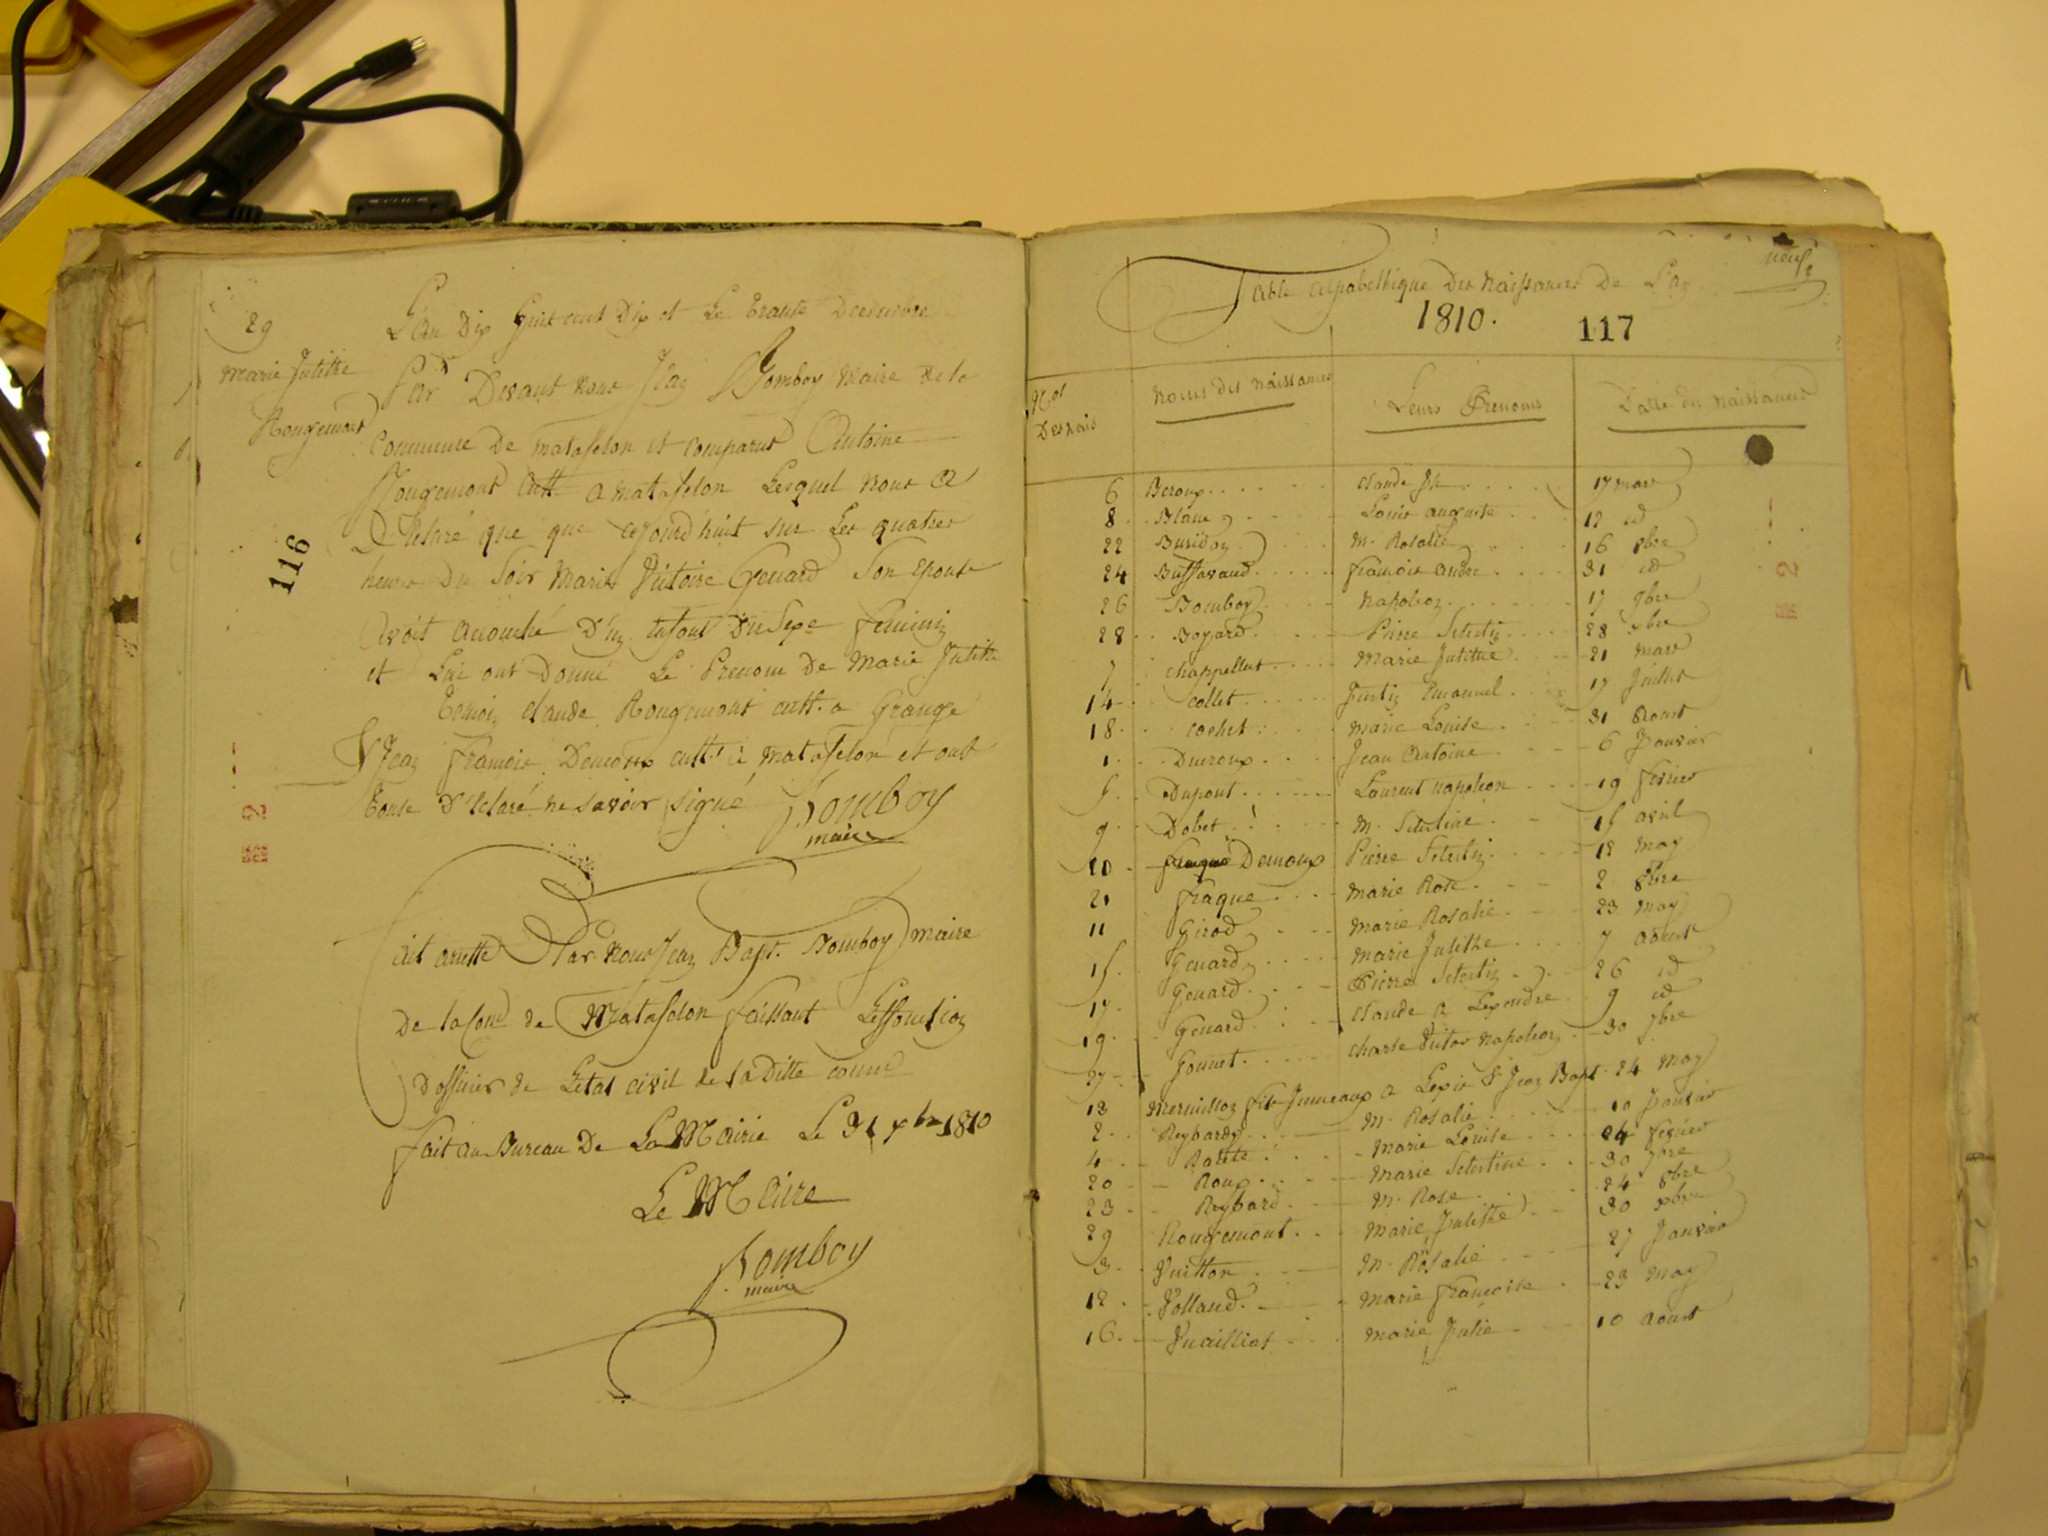 29
Marie Julithe
Rougemont
116
L'an Dix huit cent Dix et Le trante Decembre
Par Devant nous Jean Bomboy Maire de la
Commune de Matafelon et comparut Antoine
Rougemont Cult. a matafelon Lesquel nous a
Declaré que que cejourd'huit sur Les quatres
heures Du Soir Marie Victoire Genard Son Epouse
avoit acouché D'un enfant Du Sexe feminin
et Lui ont Donné Le Prenom de Marie Julithe
Temoin Claude Rougemont cult. a Grange
& Jean François Demoux cult. à Matafelon et ont
Tous D'eclaré ne Savoir signé Bomboy
maire
ait aretté Par nous Jean Bapt. Bomboy maire
De la Com de Matafelon faissant Les fonction
D'officier de L'etat civil de la Ditte comm
fait au Bureau De La Mairie Le 31 xbre 1810
Le Maire
Bomboy
maire
neuf
Table alphabethique Des Naissances De L'an
1810. 117
Nos Des nais
Noms des Naissances
Leurs Prenoms
Datte des Naissances
6 Beroux claude 17 mars
8 Blanc Louis auguste 12 id
22 Buridon M. Rosalie 16 8bre
24 Buffavand françois andré 31 id
26 Bomboy Napoleon 17 9bre
28 Boyard Pierre 28 xbre
7 chappellut Marie Julithe 21 mars
14 collet Justin Emanuel 17 Juillet
18 cochet marie Louise 31 Aoust
1 Ducroux Jean Antoine 6 Janvier
5 Dupont Laurent napoleon 19 fevrier
9 Dobet M. 15 avril
10 Demoux Pierre 12 may
21 fraque marie Rose 2 8bre
11 Girod marie Rosalie 23 may
15 Genard marie Julithe 7 aoust
17 Genard Pierre 26 id
19 Genard claude a Lexandre 9 id
27 Gonnet charle Victor Napoleon 30 9bre
13 Mermillon fils Jumeaux a Lexis & Jean Bapt. 24 may
2 Reybard M. Rosalie 10 Janvier
4 Marie Louise 24 fevrier
20 Roux Marie 30 7bre
23 Reybard M. Rose 24 8bre
29 Rougemont Marie Julithe 30 xbre
3 Vuitton M. Rosalie 27 Janvier
12 Volland Marie françoise 23 may
16 Vuailliat Marie Julie 10 aoust